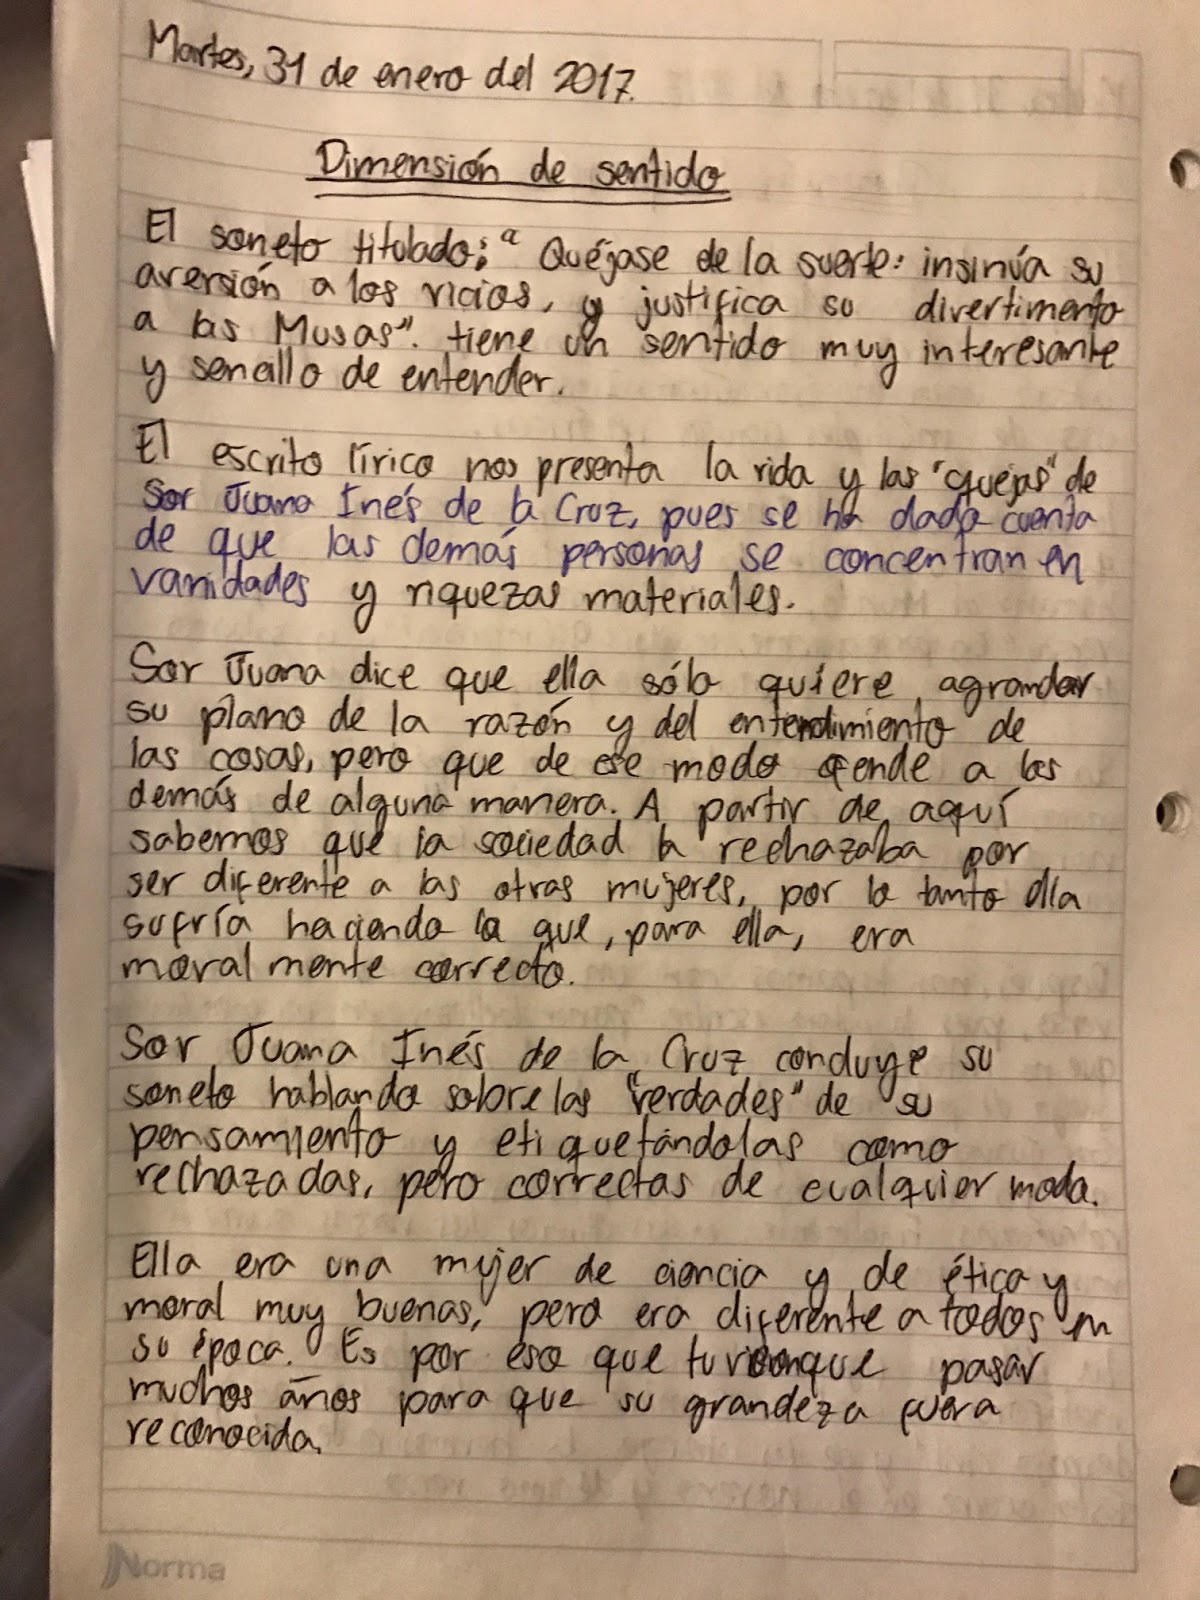 Martes, 31 de enero del 2017.
Dimensión de sentido
El soneto titulado; "Quéjase de la suerte: insinúa su
aversión a los vicios, y justifica su divertimento
a las Musas". tiene un sentido muy interesante
y sencillo de entender.
El escrito lírico nos presenta la vida y las "quejas" de
Sor Juana Inés de la Cruz, pues se ha dado cuenta
de que las demás personas se concentran en
vanidades y riquezas materiales.
Sor Juana dice que ella sólo quiere agrandar
su plano de la razón y del entendimiento de
las cosas, pero que de ese modo ofende a los
demás de alguna manera. A partir de aquí
sabemos que la sociedad la rechazaba por
ser diferente a las otras mujeres, por lo tanto ella
sufría haciendo lo que, para ella, era
moralmente correcto.
Sor Juana Inés de la Cruz concluye su
soneto hablando sobre las "verdades" de su
pensamiento y etiquetándolas como
rechazadas, pero correctas de cualquier modo.
Ella era una mujer de ciencia y de ética y
moral muy buenas, pero era diferente a todos en
su época. Es por eso que tuvieron que pasar
muchos años para que su grandeza fuera
reconocida.
Norma